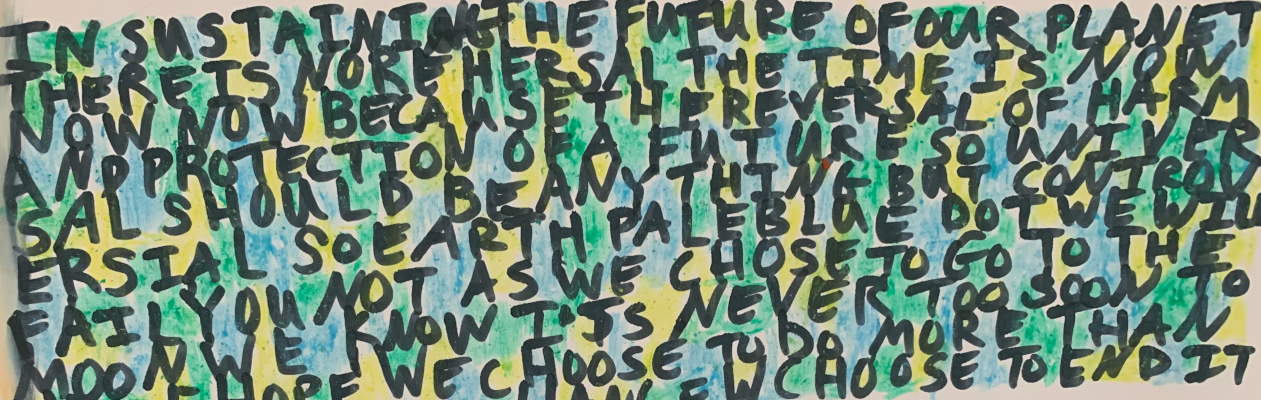 IN SUSTAINING THE FUTURE OF OUR PLANET
THERE IS NO REHERSAL THE TIME IS NOW
NOW NOW BECAUSE THE REVERSAL OF HARM
AND PROTECTION OF A FUTURE SO UNIVER
SAL SHOULD BE ANYTHING BUT CONTROV
ERSIAL SO EARTH PALE BLUE DOT WE WILL
FAIL YOU NOT AS WE CHOSE TO GO TO THE
MOON WE KNOW IT'S NEVER TOO SOON TO
HOPE WE CHOOSE TO DO MORE THAN
WE CHOOSE TO END IT